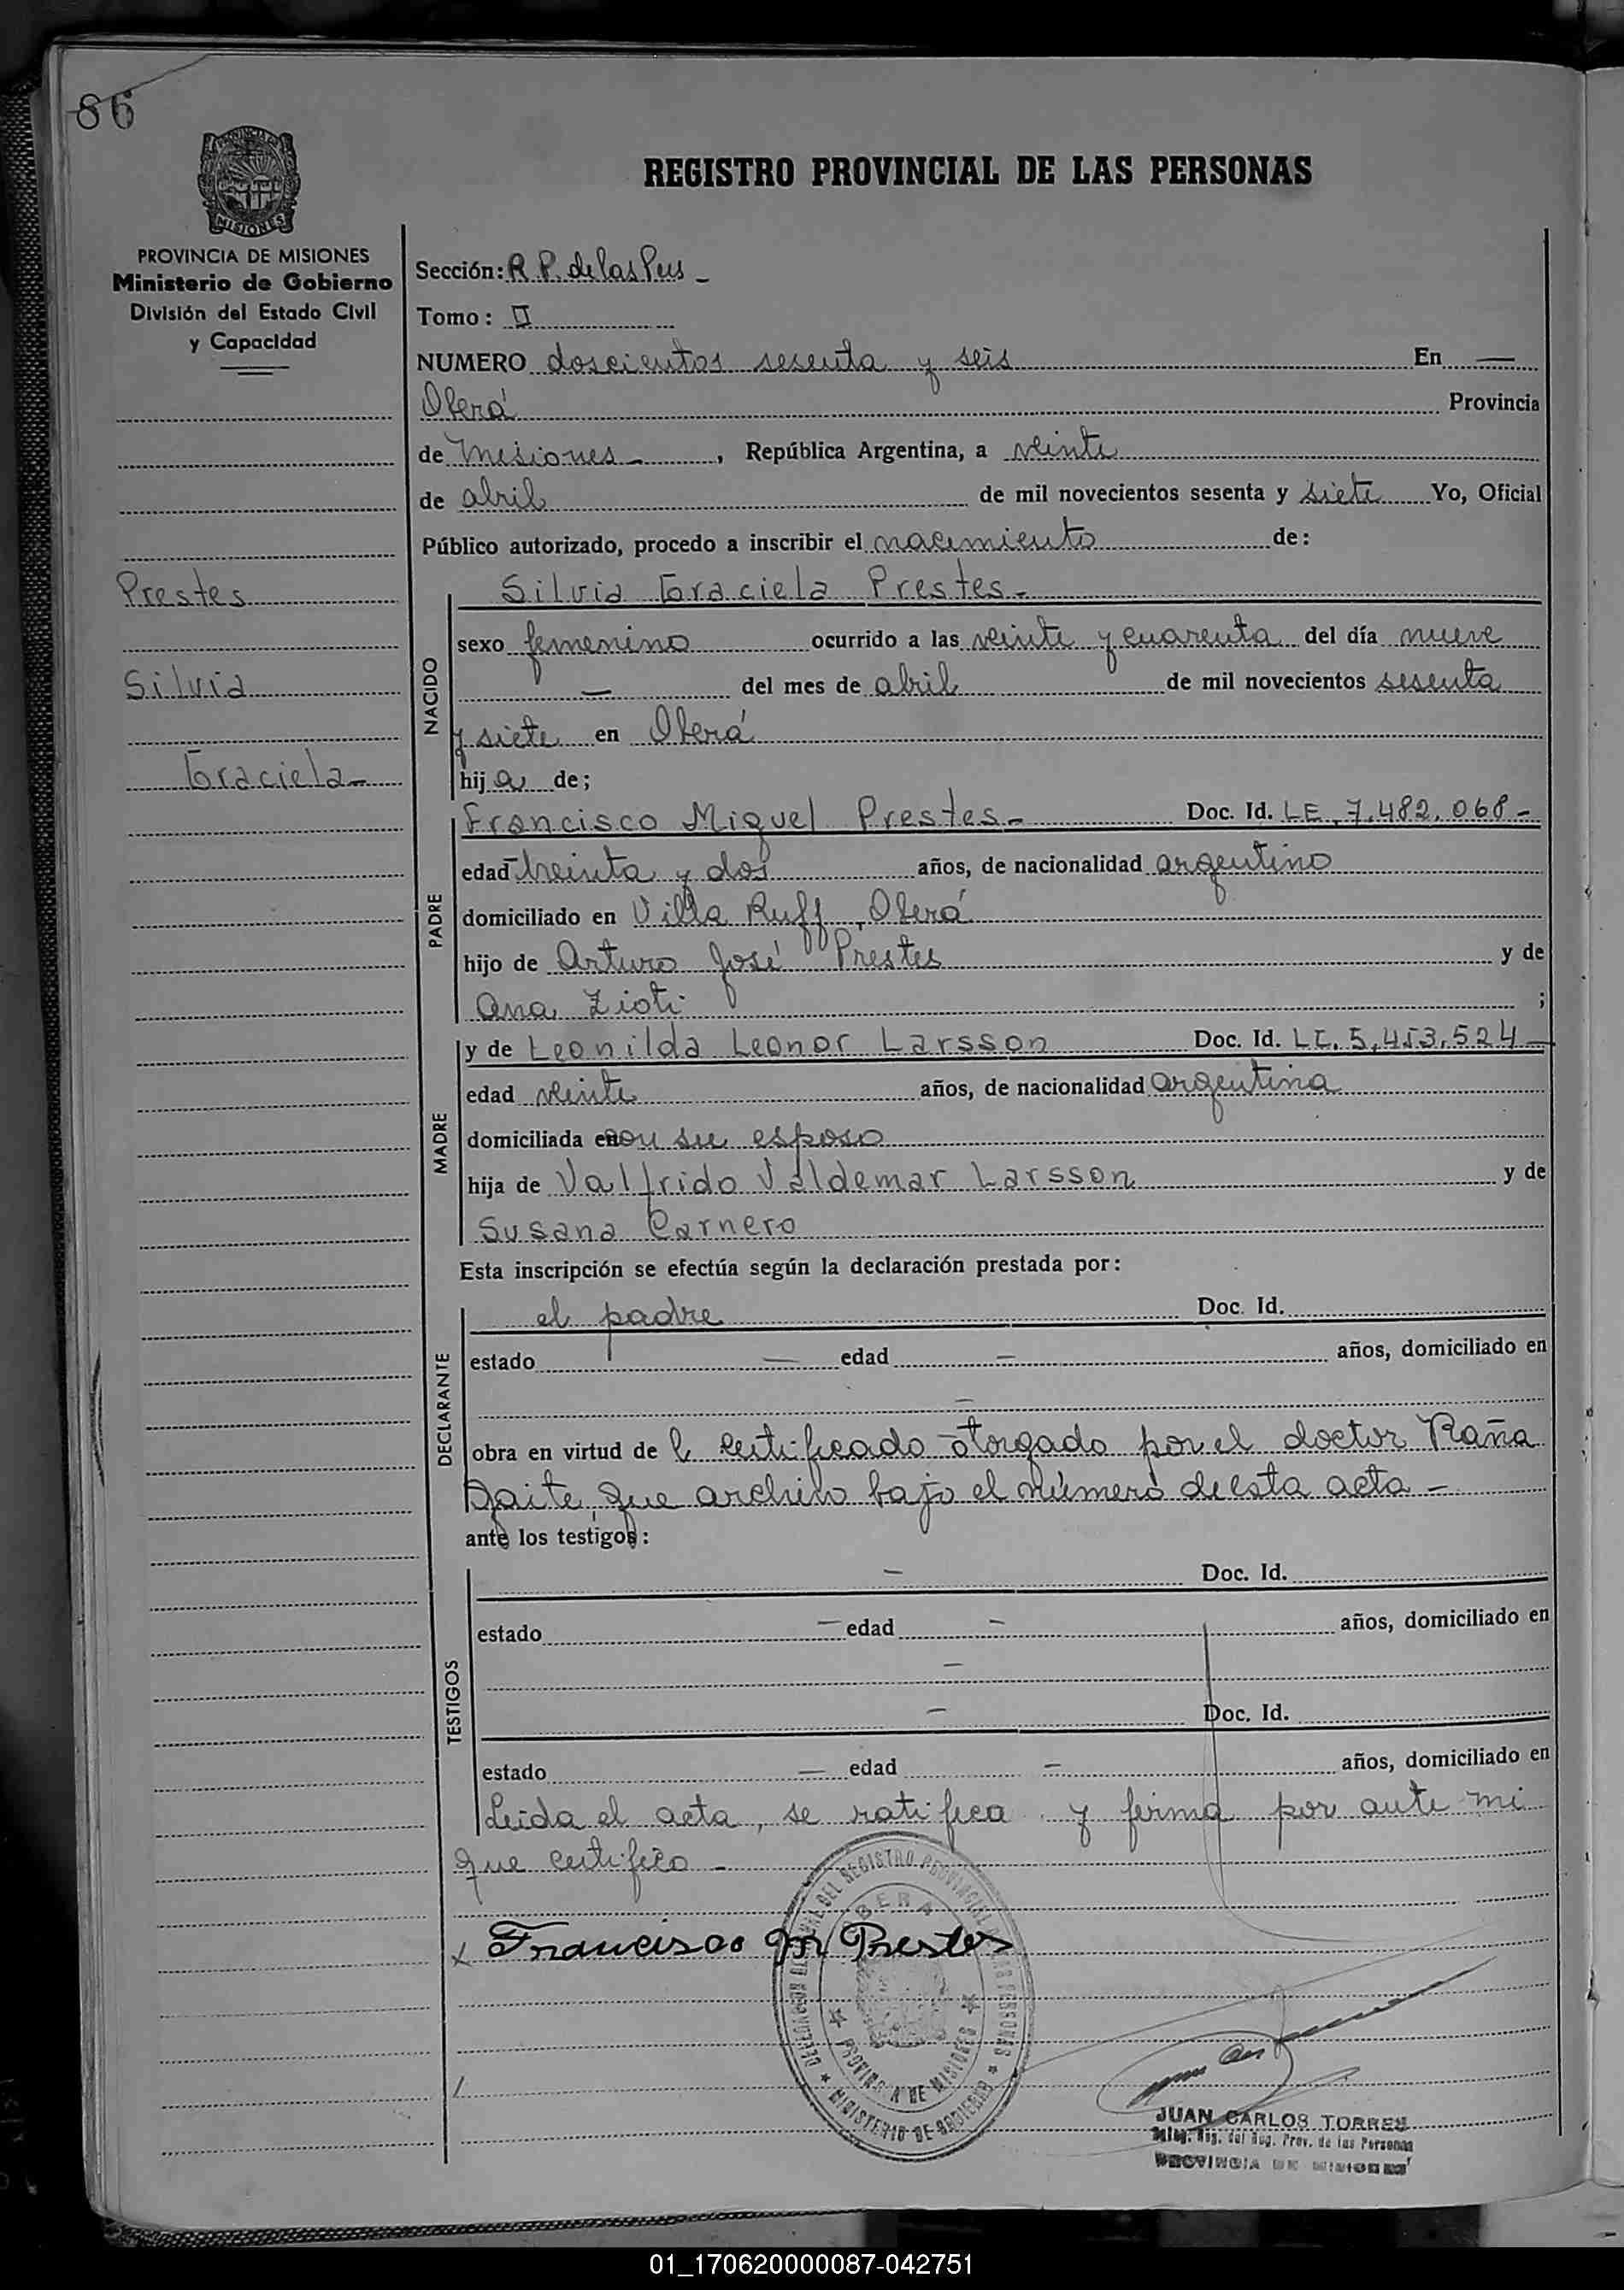 86
PROVINCIA DE MISIONES
MISIONES
REGISTRO PROVINCIAL DE LAS PERSONAS
PROVINCIA DE MISIONES
Ministerio de Gobierno
División del Estado Civil
y Capacidad
Prestes
Silvia
Graciela
Sección: R. P. de las Pers
Tomo: II
NUMERO doscientos sesenta y seis En
Oberá Provincia
de Misiones, República Argentina, a veinte
de abril de mil novecientos sesenta y siete Yo, Oficial
Público autorizado, procedo a inscribir el nacimiento de:
NACIDO
Silvia Graciela Prestes.-
sexo femenino ocurrido a las veinte y cuarenta del día nueve
— del mes de abril de mil novecientos sesenta
y siete en Oberá
hija de;
PADRE
Francisco Miguel Prestes- Doc. Id. LE. 7.482.068-
edad treinta y dos años, de nacionalidad argentino
domiciliado en Villa Ruff, Oberá
hijo de Arturo José Prestes y de
Ana Zioti ;
MADRE
y de Leonilda Leonor Larsson Doc. Id. LC. 5,453,524
edad veinte años, de nacionalidad argentina
domiciliada en con su esposo
hija de Valfrido Valdemar Larsson y de
Susana Carnero
Esta inscripción se efectúa según la declaración prestada por:
DECLARANTE
el padre Doc. Id.
estado — edad — años, domiciliado en
—
obra en virtud de l certificado otorgado por el doctor Raña
que archivo bajo el número de esta acta -
ante los testigos:
TESTIGOS
— Doc. Id.
estado — edad — años, domiciliado en
—
— Doc. Id.
estado — edad — años, domiciliado en
Leida el acta, se ratifica y firma por ante mi
que certifico -
x Francisco M Prestes
DEL REGISTRO PROVINCIAL DE LAS PERSONAS
OBERA
PROVINCIA DE MISIONES
MINISTERIO DE GOBIERNO
JUAN CARLOS TORRES
Reg. Prov. de las Personas
PROVINCIA DE MISIONES
01_170620000087-042751